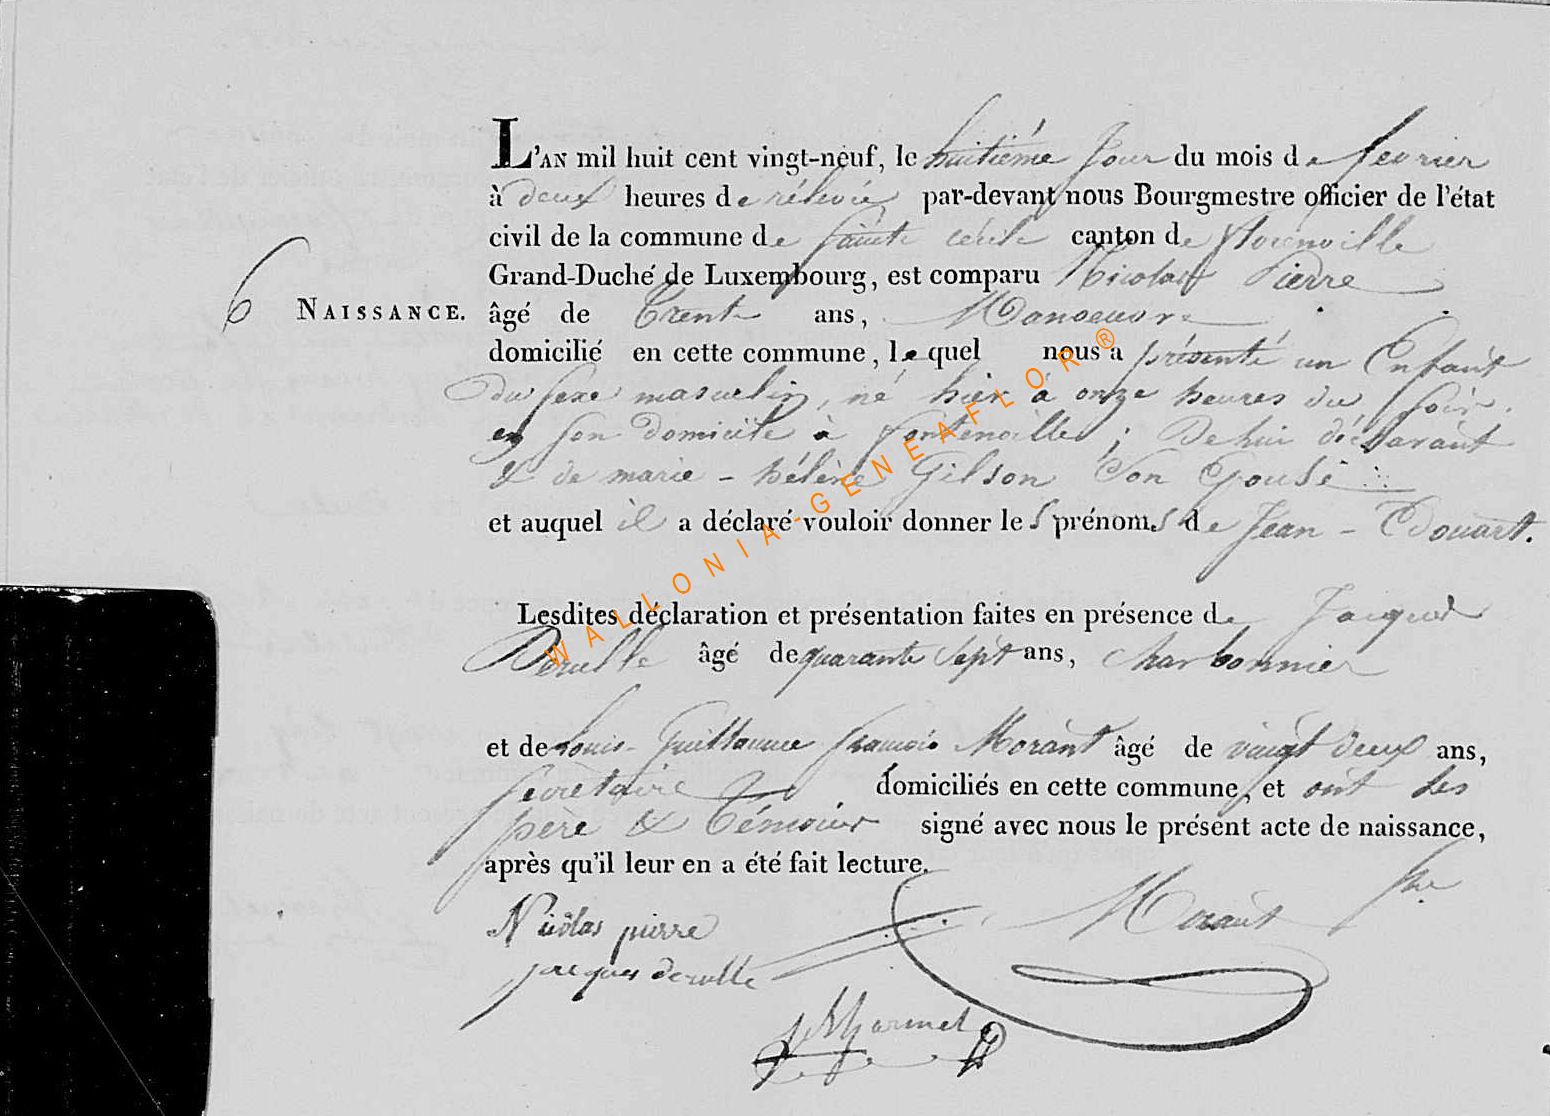 L'AN mil huit cent vingt-neuf, le huitième Jour du mois de fevrier
à deux heures de rélevée par-devant nous Bourgmestre officier de l'état
civil de la commune de Sainte Cécile canton de florenville
Grand-Duché de Luxembourg, est comparu Nicolas Pierre
6 NAISSANCE. âgé de Trente ans, Manoeuvre
domicilié en cette commune, lequel nous a présenté un Enfant
du sexe masculin, né hier à onze heures du soir,
en son domicile à fontenoille ; De lui déclarant
& de marie - hélène Gilson Son Epouse
et auquel il a déclaré vouloir donner les prénoms de Jean - Edouart.
Lesdites déclaration et présentation faites en présence de Jacques
Derulle âgé de quarante sept ans, charbonnier
et de Louis Guillaume françois Morant âgé de vingt deux ans,
secrétaire domiciliés en cette commune, et ont les
père & témoins signé avec nous le présent acte de naissance,
après qu'il leur en a été fait lecture.
Nicolas pierre Morant
jacques derulle
WALLONIA-GENEAFLOR ®